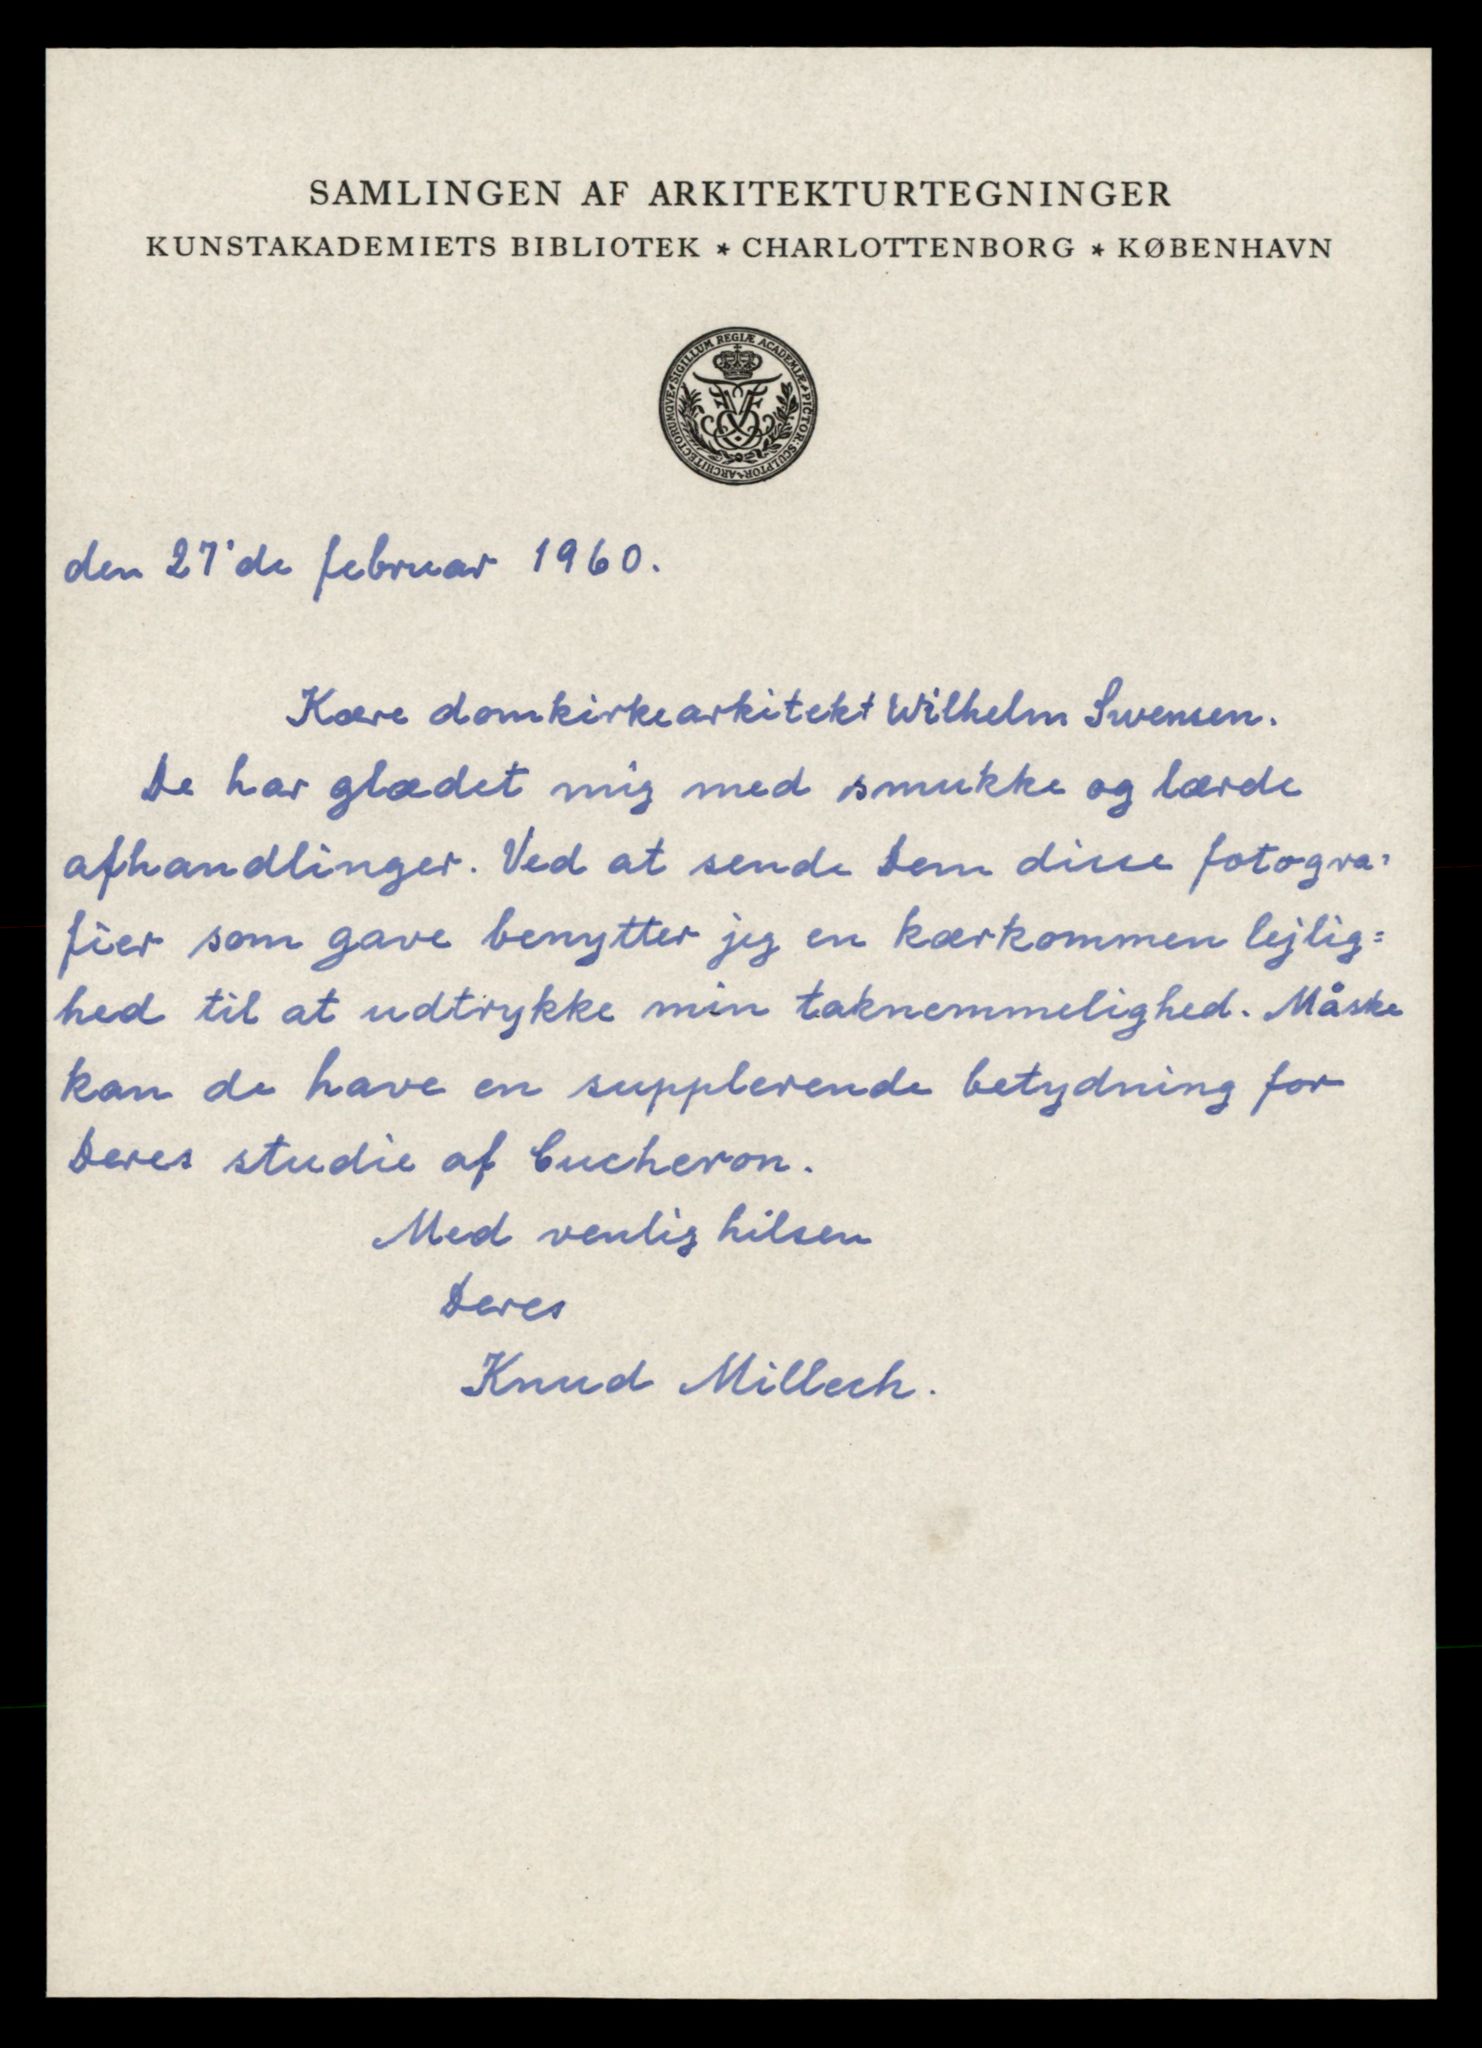 SAMLINGEN AF ARKITEKTURTEGNINGER
KUNSTAKADEMIETS BIBLIOTEK * CHARLOTTENBORG * KØBENHAVN
SIGILLUM REGIÆ ACADEMIÆ * PICTOR: SCULPTOR * ARCHITECTORUMQVE *
den 27'de februar 1960.
Kære domkirkearkitekt Wilhelm Swensen.
De har glædet mig med smukke og lærde
afhandlinger. Ved at sende Dem disse fotogra=
fier som gave benytter jeg en kærkommen lejlig=
hed til at udtrykke min taknemmelighed. Måske
kan de have en supplerende betydning for
Deres studie af Cucheron.
Med venlig hilsen
Deres
Knud Millech.